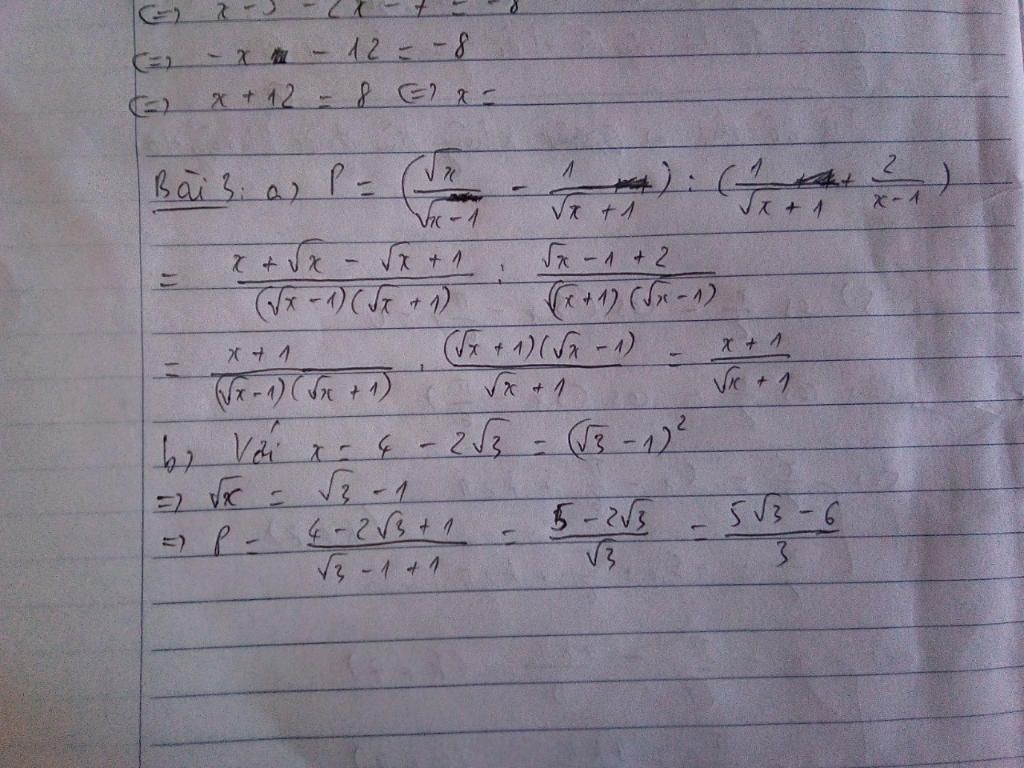 (=) x - 5 - 2x - 7 = -8
(=) - x - 12 = -8
(=) x + 12 = 8 (=) x =
Bài 3: a, P = (√x/(√x - 1) - 1/(√x + 1)) : (1/(√x + 1) + 2/(x - 1))
= (x + √x - √x + 1)/((√x - 1)(√x + 1)) : (√x - 1 + 2)/((√x + 1)(√x - 1))
= (x + 1)/((√x - 1)(√x + 1)) . ((√x + 1)(√x - 1))/(√x + 1) = (x + 1)/(√x + 1)
b, Với x = 4 - 2√3 = (√3 - 1)²
=> √x = √3 - 1
=> P = (4 - 2√3 + 1)/(√3 - 1 + 1) = (5 - 2√3)/√3 = (5√3 - 6)/3